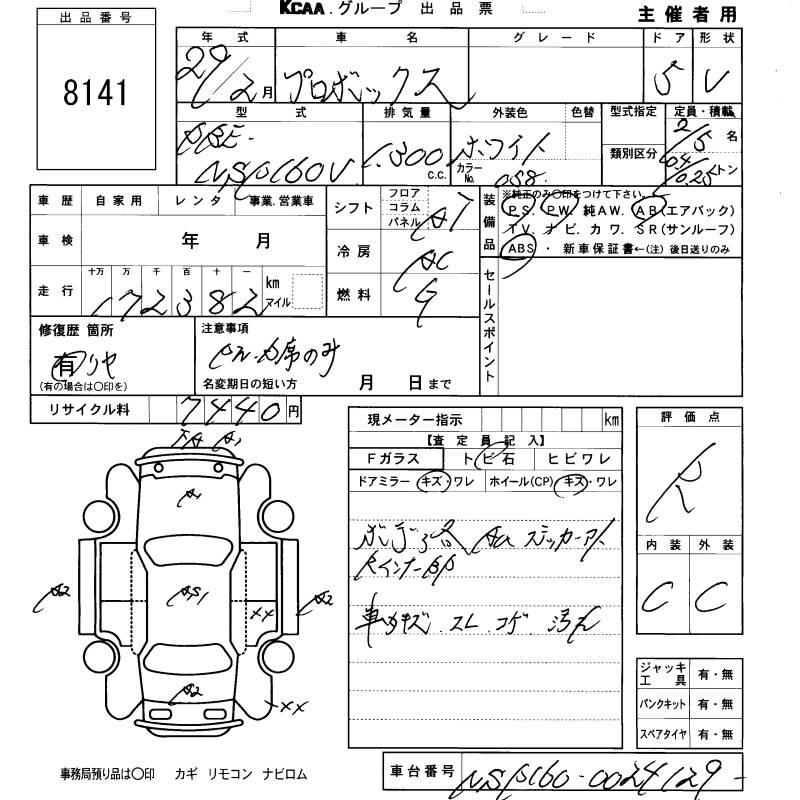 KCAA.グループ 出品票
主催者用
出品番号
8141
年式 車名 グレード ドア 形状
29/2月 プロボックス 5 V
型式 排気量 外装色 色替 型式指定 定員・積載
DBE-
NSP160V 1,300 c.c. ホワイト カラーNo. 058 類別区分 2/5名 0.4/0.25トン
車歴 自家用 レンタ 事業.営業車
車検 年 月
走行 十万 万 千 百 十 一 km マイル
172382
シフト フロア コラム パネル AT
冷房 AC
燃料 G
装備品 ※純正のみ〇印をつけて下さい。
PS. PW. 純AW. AB(エアバック)
TV. ナビ. カワ. SR(サンルーフ)
ABS ・ 新車保証書←(注)後日送りのみ
セールスポイント
修復歴 箇所
有 リヤ
(有の場合は〇印を)
注意事項
名変期日の短い方 月 日まで
リサイクル料 7440円
現メーター指示 km
【査定員記入】
Fガラス トビ石 ヒビワレ
ドアミラー キズ・ワレ ホイール(CP) キズ・ワレ
ステッカーアト
スレ.コゲ.
評価点
R
内装 外装
C C
A1
A1
A2 A2
XX
A2
XX
ジャッキ工具 有・無
パンクキット 有・無
スペアタイヤ 有・無
事務局預り品は〇印 カギ リモコン ナビロム
車台番号 NSP160-0024129-